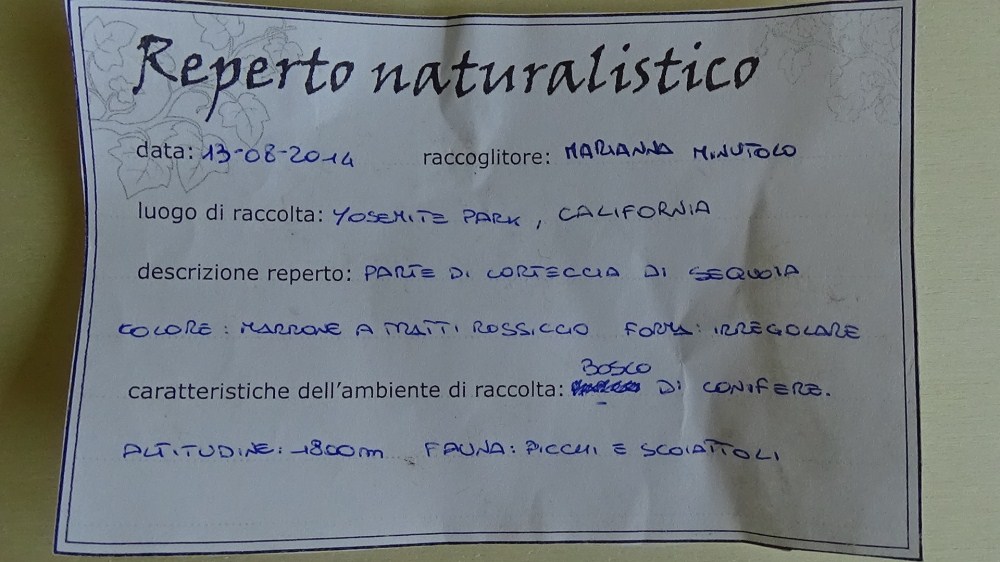 Reperto naturalistico
data: 13-08-2014 raccoglitore: MARIANNA MINUTOLO
luogo di raccolta: YOSEMITE PARK, CALIFORNIA
descrizione reperto: PARTE DI CORTECCIA DI SEQUOIA
COLORE: MARRONE A TRATTI ROSSICCIO FORMA: IRREGOLARE
caratteristiche dell'ambiente di raccolta: BOSCO DI CONIFERE.
ALTITUDINE: 1800m FAUNA: PICCHI E SCOIATTOLI